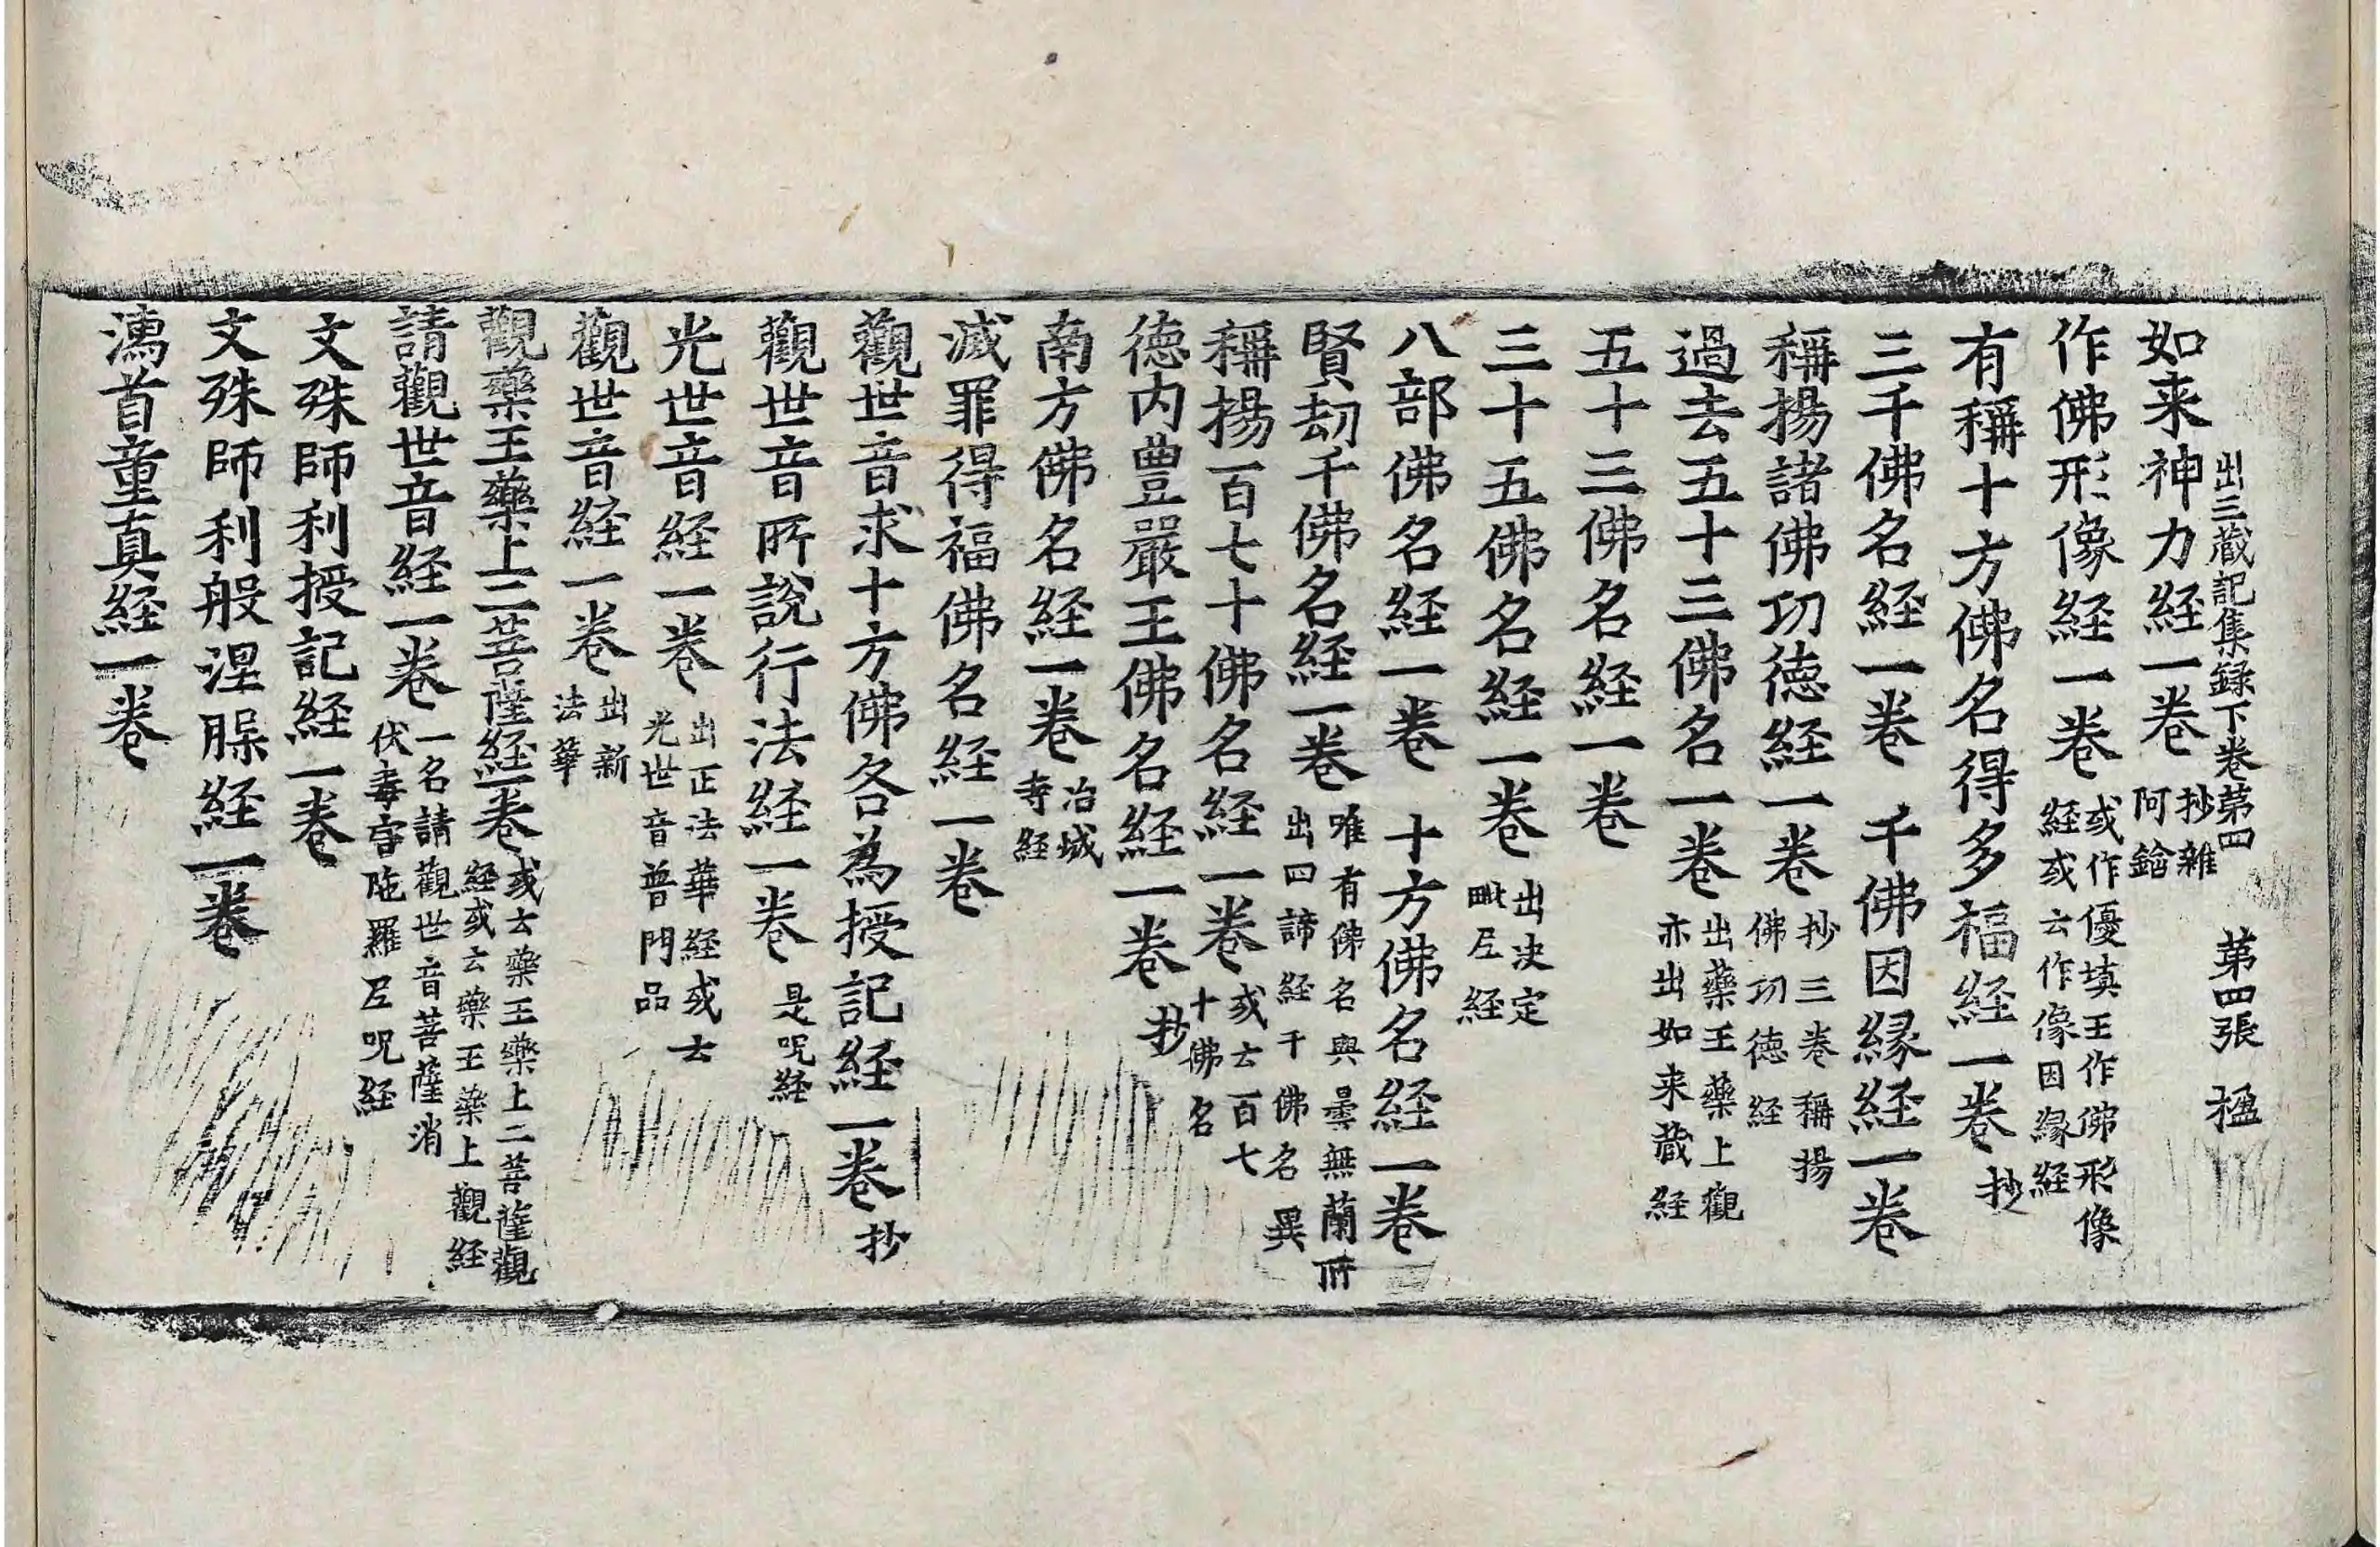 出三蔵記集録下巻第四 第四張 楹
如来神力経一巻 抄雜阿鋡
作佛形像経一巻 或作優填王作佛形像経或云作像因縁経
有稱十方佛名得多福経一巻 抄
三千佛名経一巻 千佛因縁経一巻
稱揚諸佛功德経一巻 抄三巻稱揚佛功德経
過去五十三佛名一巻 出藥王藥上觀亦出如来蔵経
五十三佛名経一巻
三十五佛名経一巻 出决定毗尼経
八部佛名経一巻 十方佛名経一巻
賢劫千佛名経一巻 唯有佛名與曇無蘭所出四諦経千佛名異
稱揚百七十佛名経一巻 或云百七十佛名
德内豊嚴王佛名経一巻 抄
南方佛名経一巻 冶城寺経
滅罪得福佛名経一巻
觀世音求十方佛各為授記経一巻 抄
觀世音所說行法経一巻 是呪経
光世音経一巻 出正法華経或云光世音普門品
觀世音経一巻 出新法華
觀藥王藥上二菩薩経一巻 或云藥王藥上二菩薩觀経或云藥王藥上觀経
請觀世音経一巻 一名請觀世音菩薩消伏毒害陁羅尼呪経
文殊師利授記経一巻
文殊師利般涅槃経一巻
濡首童真経一巻